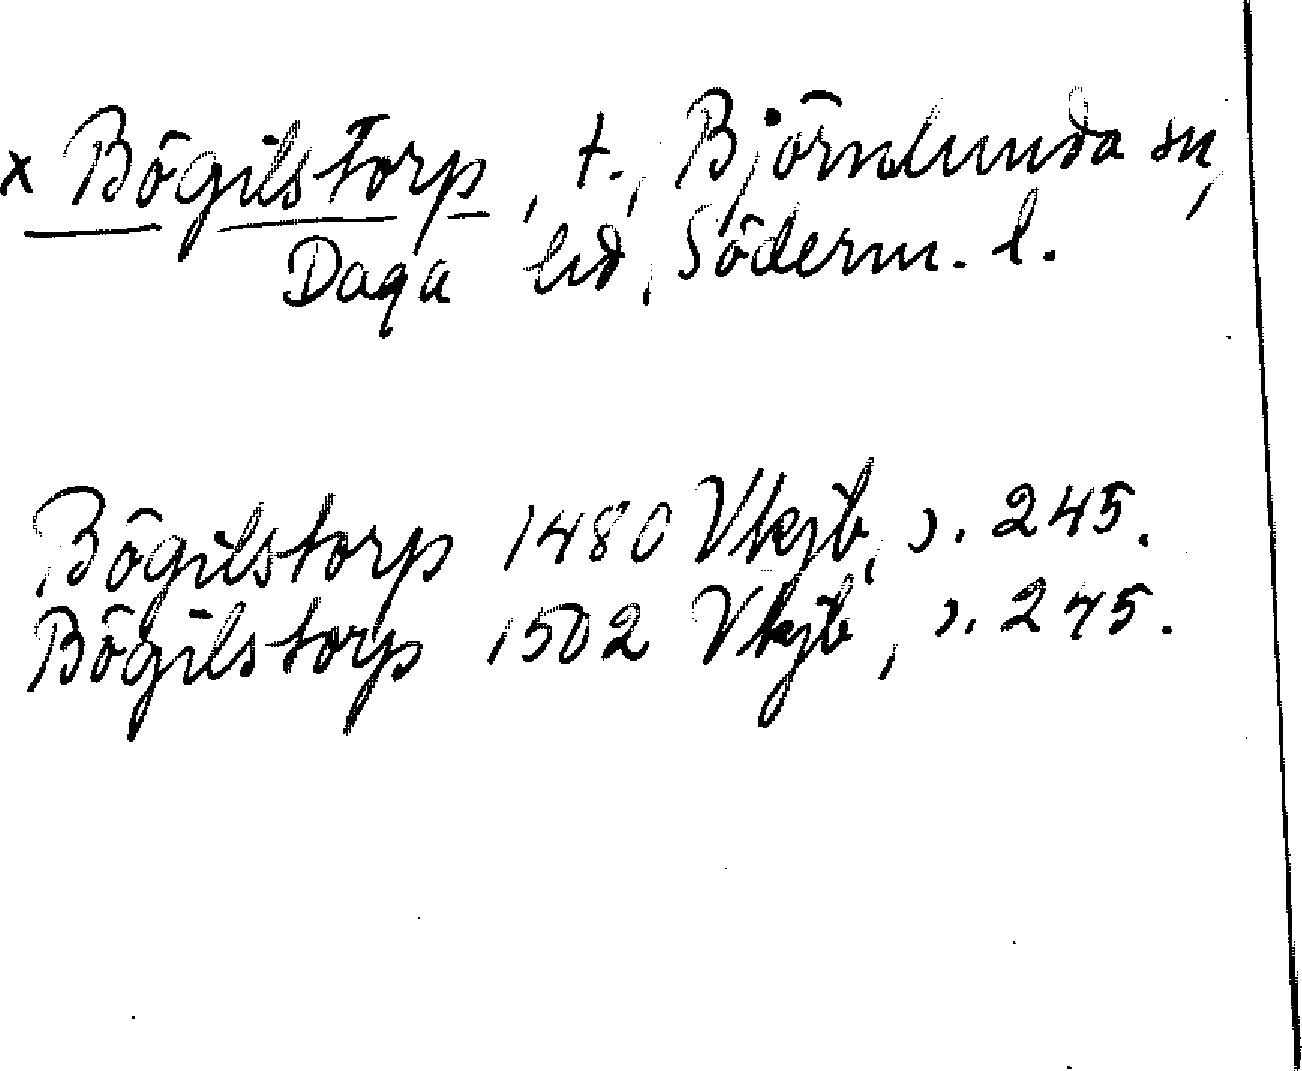 x Bögilstorp, t., Björnlunda sn,
Daga hd, Söderm. l.
Bögilstorp 1480 Vkjb, s. 245.
Bögilstorp 1502 Vkjb, s. 245.